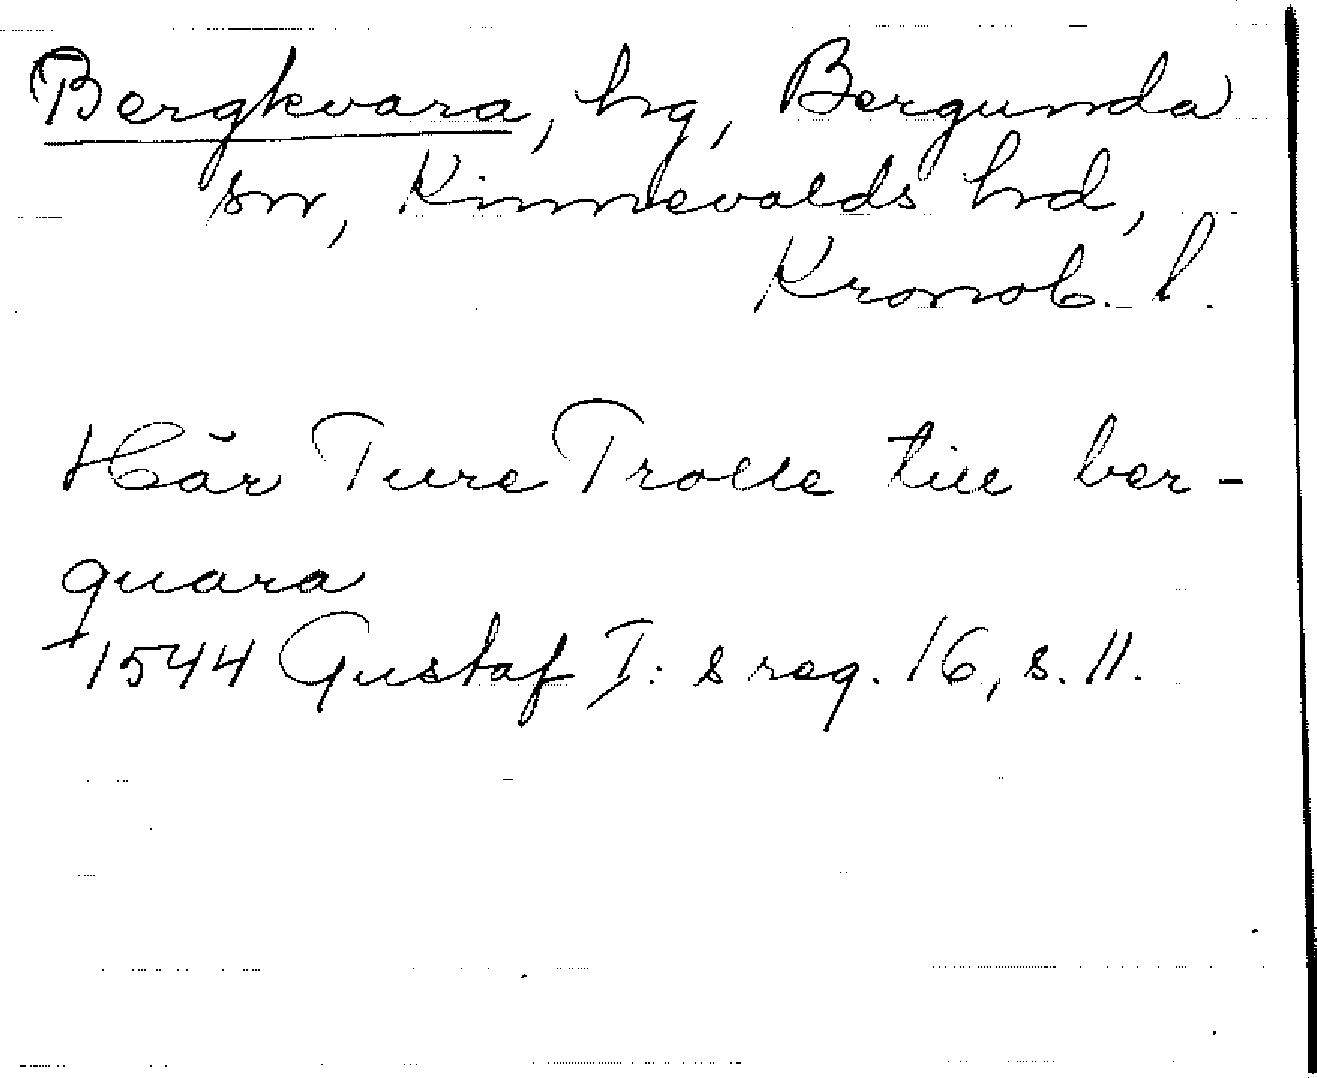 Bergkvara, hg, Bergunda
sn, Kinnevalds hd,
Kronob. l.
Här Ture Trolle till ber-
quara
1544 Gustaf I: s reg. 16, s. 11.